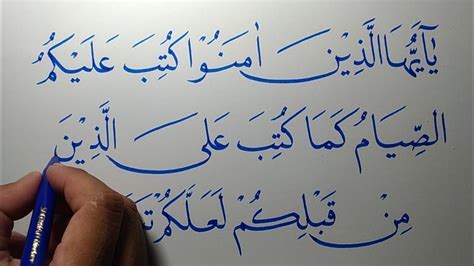 يٰٓاَيُّهَا الَّذِيْنَ اٰمَنُوْا كُتِبَ عَلَيْكُمُ
الصِّيَامُ كَمَا كُتِبَ عَلَى الَّذِيْنَ
مِنْ قَبْلِكُمْ لَعَلَّكُمْ